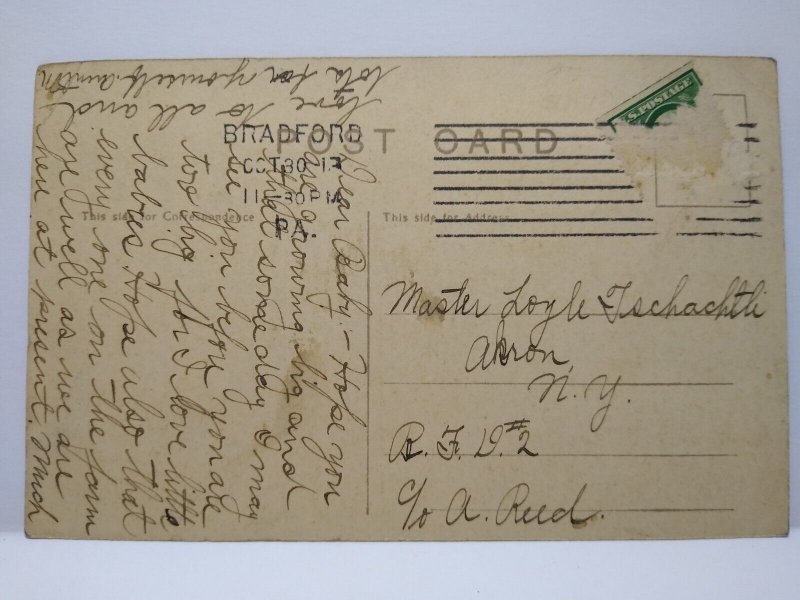 POST CARD
U.S. POSTAGE
BRADFORD
OCT 30 13
11-30 PM
PA.
This side for Correspondence
This side for Address
Dear Baby:- Hope you
are growing big and
that some day I may
see you before you are
too big for I love little
babies. Hope also that
every one on the farm
are well as we are
here at present. Much
love to all and
lots for yourself.
Master Loyle Tschachtli
Akron,
N.Y.
R.F.D. #2
c/o A. Reed.